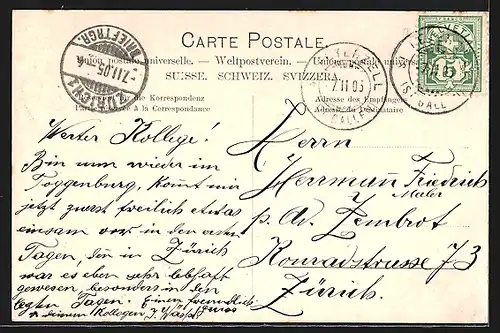 CARTE POSTALE.
Union postale universelle. — Weltpostverein. — Unione postale universale
SUISSE. SCHWEIZ. SVIZZERA.
die Korrespondenz
Adresse des Empfängers
à la Correspondance
du Destinataire
HELVETIA
5
7.II.05
BRIEFTRGR.
ZÜRICH
7.II.05
GALLEN
Werter Kollege!
Bin nun wieder im
Toggenburg, kommt mir
jetzt zuerst freilich etwas
einsam vor in den ersten
Tagen, den in Zürich
war es eben sehr lebhaft
gewesen, besonders in den
letzten Tagen. Einen freundlich
Gruss
deinem Kollegen J.
Herrn
Herrmann Friedrich
Maler
p. Ad. Zembrot
Konradstrasse 73
Zürich.